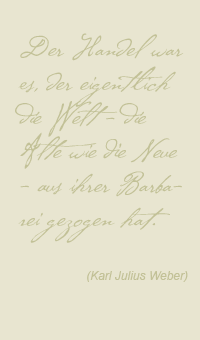 Der Handel war
es, der eigentlich
die Welt – die
Alte wie die Neue
– aus ihrer Barba-
rei gezogen hat.
(Karl Julius Weber)